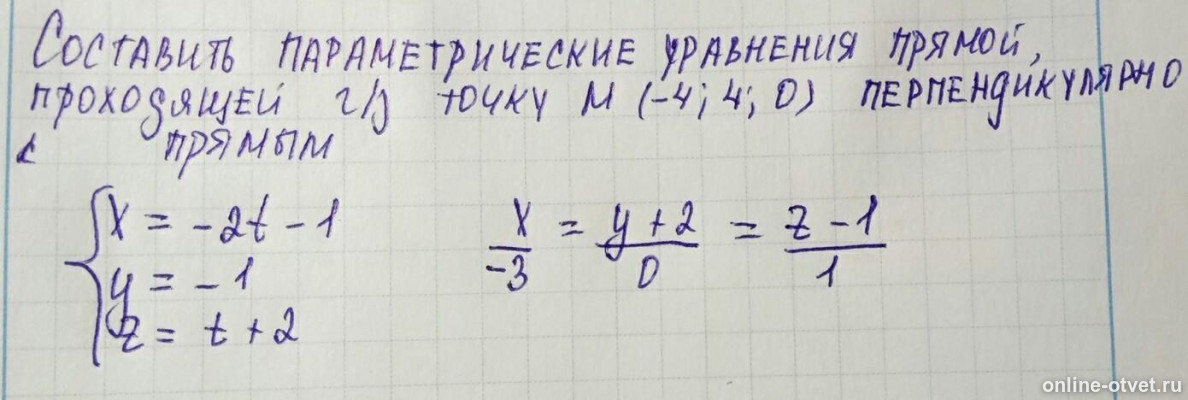 Составить параметрические уравнения прямой,
проходящей ч/з точку M (-4; 4; 0) перпендикулярно
к прямым
{ x = -2t - 1
y = -1
z = t + 2
x/-3 = y+2/0 = z-1/1
online-otvet.ru